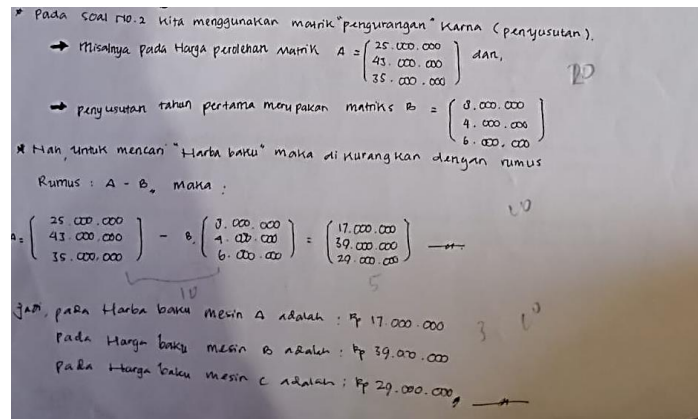 * Pada soal no.2 kita menggunakan matrik "pengurangan" karna (penyusutan).
→ misalnya pada Harga perolehan Matrik A = (25.000.000 43.000.000 35.000.000) dan,
20
→ penyusutan tahun pertama merupakan matriks B = (8.000.000 4.000.000 6.000.000)
* Nah, untuk mencari "Harba baku" maka di kurangkan dengan rumus
Rumus : A - B, maka :
10
A = (25.000.000 43.000.000 35.000.000) - B. (8.000.000 4.000.000 6.000.000) = (17.000.000 39.000.000 29.000.000)
10 5
Jadi, pada Harba baku mesin A adalah : Rp 17.000.000
3. 10
Pada Harga baku mesin B adalah : Rp 39.000.000
Pada Harga baku mesin C adalah : Rp 29.000.000,